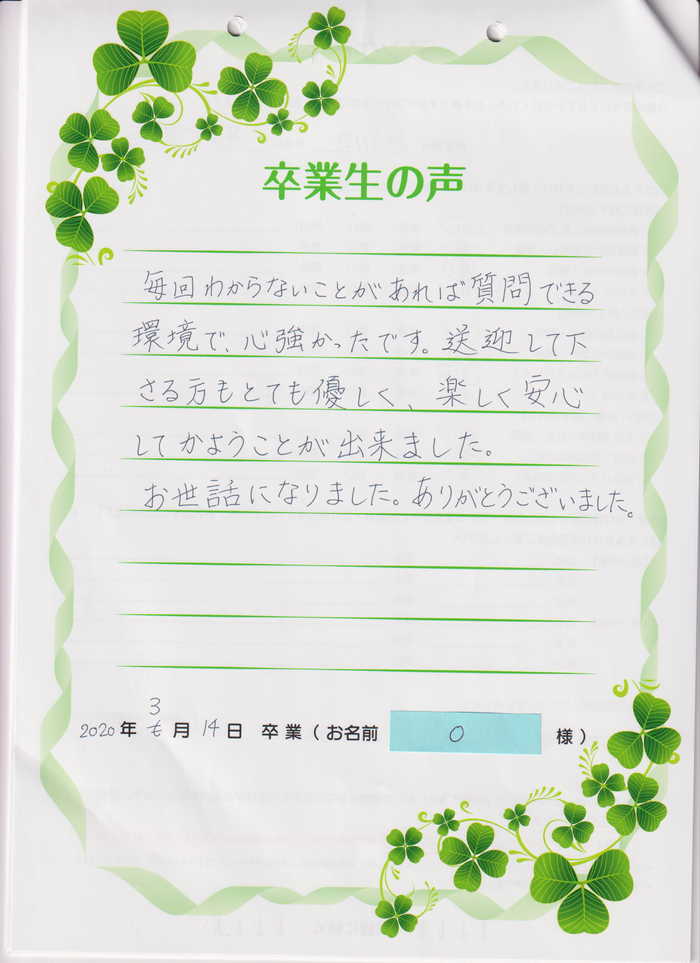 卒業生の声
毎回わからないことがあれば質問できる
環境で、心強かったです。送迎して下
さる方もとても優しく、楽しく安心
してかようことが出来ました。
お世話になりました。ありがとうございました。
3
2020年 月 14日 卒業(お名前 O 様)